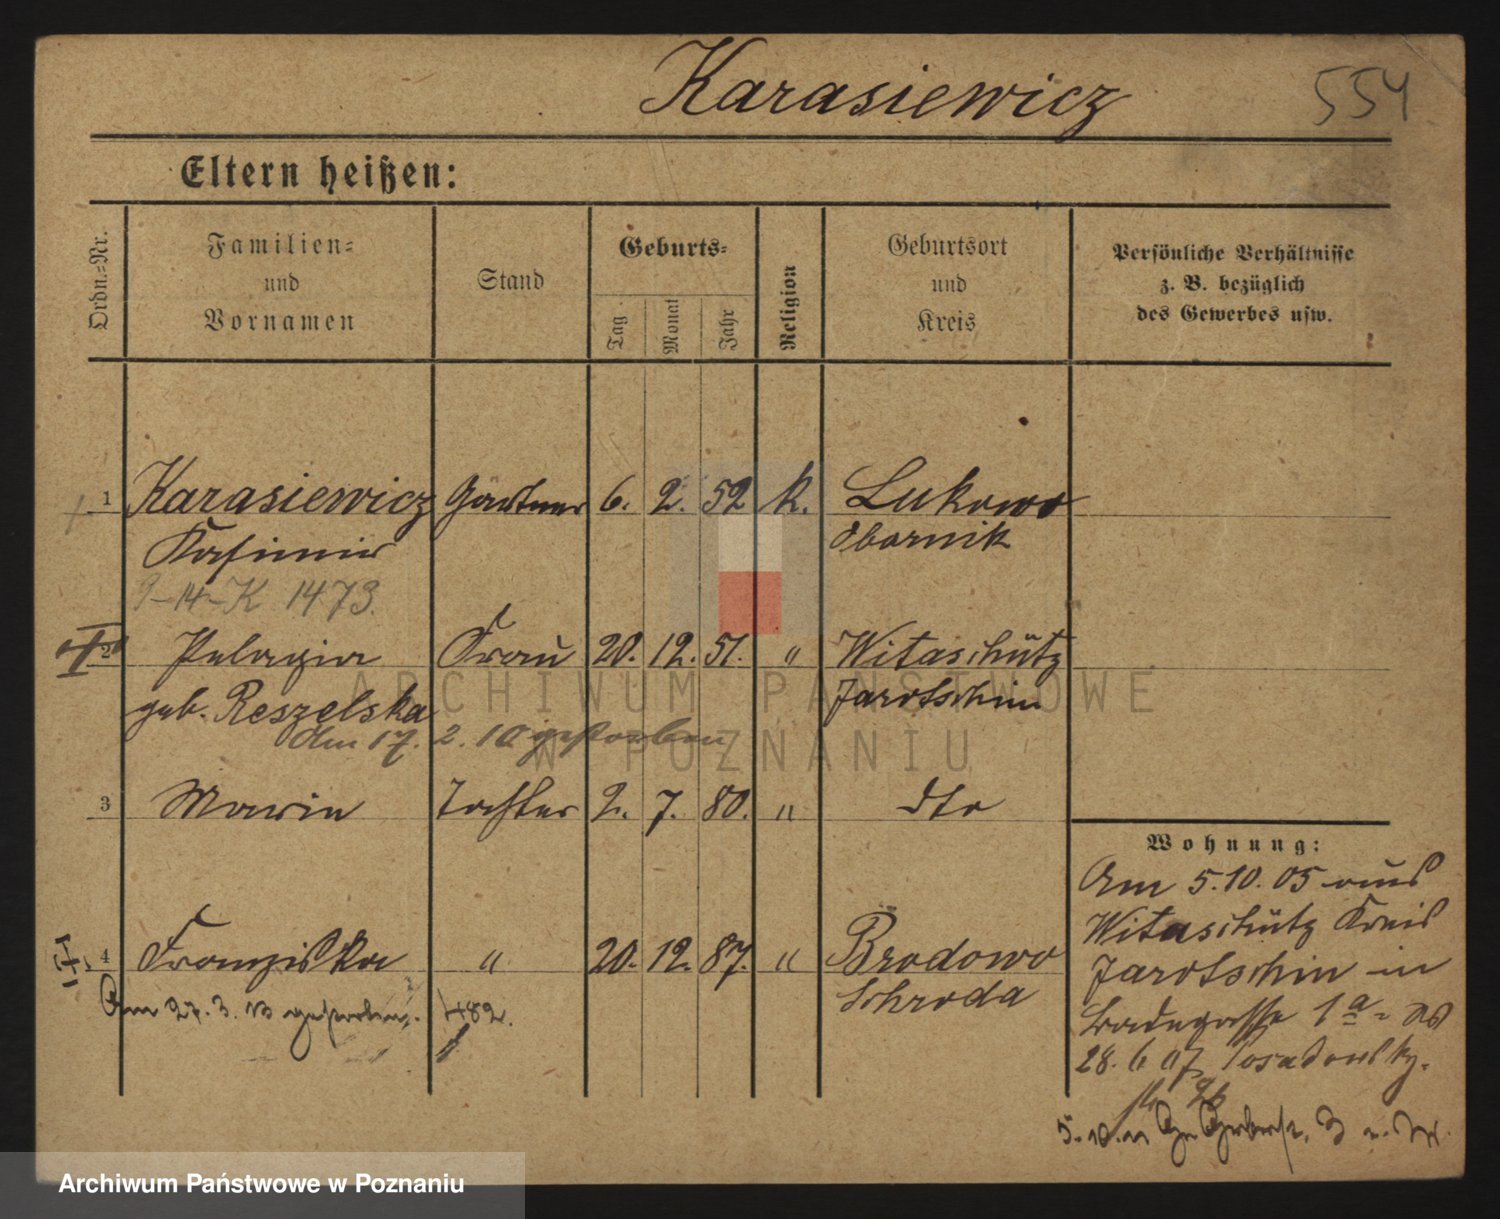 Karasiewicz 554
Eltern heißen:
Ordn.-Nr.
Familien-
und
Vornamen
Stand
Geburts-
Tag
Monat
Jahr
Religion
Geburtsort
und
Kreis
Persönliche Verhältnisse
z. B. bezüglich
des Gewerbes usw.
1 Karasiewicz Gärtner 6. 2. 52 k. Lukowo
Kasimir Obornik
9-14-K 1473.
2 Pelagia Frau 20. 12. 51. " Witaschütz
geb. Reszelska Jarotschin
am 17. 2. 10 gestorben
3 Marie Tochter 2. 7. 80. " dto
4 Franziska " 20. 12. 87. " Brodowo
Schroda
Am 27. 3. 13 gestorben. 482.
Wohnung:
Am 5.10.05 aus
Witaschütz Kreis
Jarotschin in
1a
28. 6 07
5.10.11
ARCHIWUM PAŃSTWOWE
W POZNANIU
Archiwum Państwowe w Poznaniu